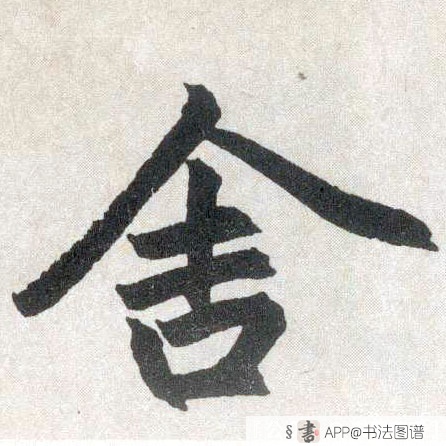 舍
§書 APP@书法图谱